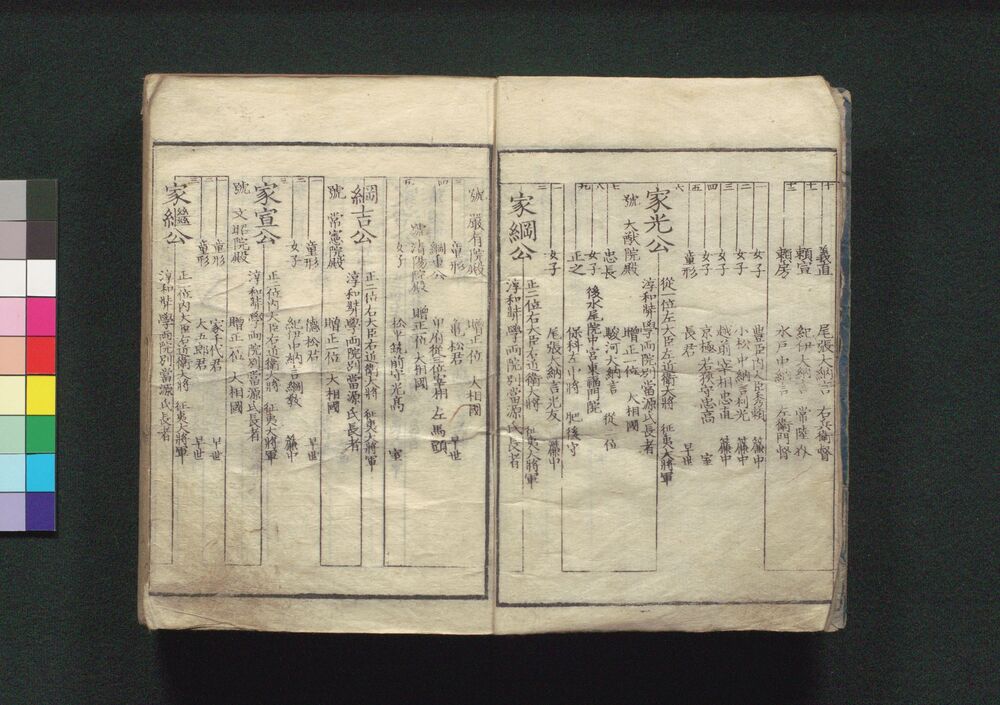 十 義直 尾張大納言 右兵衛督
十一 頼宣 紀伊大納言 常陸介
十二 頼房 水戸中納言 左衛門督
一 女子 豊臣内大臣秀頼 簾中
二 女子 小松中納言利光 簾中
三 女子 越前宰相忠直 簾中
四 女子 京極右我守忠高 室
五 童形 長君 早世
六 家光公 従一位左大臣左近衛大将 征夷大将軍
淳和弉学両院別當源氏長者
號 大猷院殿 贈正一位 大相國
七 忠長 駿河大納言 従二位
八 女子 後水尾院中宮東福門院
九 正之 保科左中将 肥後守
一 女子 尾張大納言光友 簾中
二 家綱公 正二位右大臣右近衛大将 征夷大将軍
淳和弉学両院別當源氏長者
號 厳有院殿 贈正一位 大相國
三 童形 亀松君 早世
四 綱重公 甲府従三位宰相 左馬頭
號清陽院殿 贈正一位大相國
五 女子 松平筑前守光高 室
綱吉公 正二位右大臣右近衛大将 征夷大将軍
淳和弉学両院別當源氏長者
號 常憲院殿 贈正一位 大相國
一 童形 德松君 早世
二 女子 紀伊中納言綱教 簾中
三 家宣公 正二位内大臣右近衛大将 征夷大将軍
淳和弉学両院別當源氏長者
號 文昭院殿 贈正一位 大相國
一 童形 家千代君 早世
二 童形 大五郎君 早世
三 家繼公 正二位内大臣右近衛大将 征夷大将軍
淳和弉学両院別當源氏長者